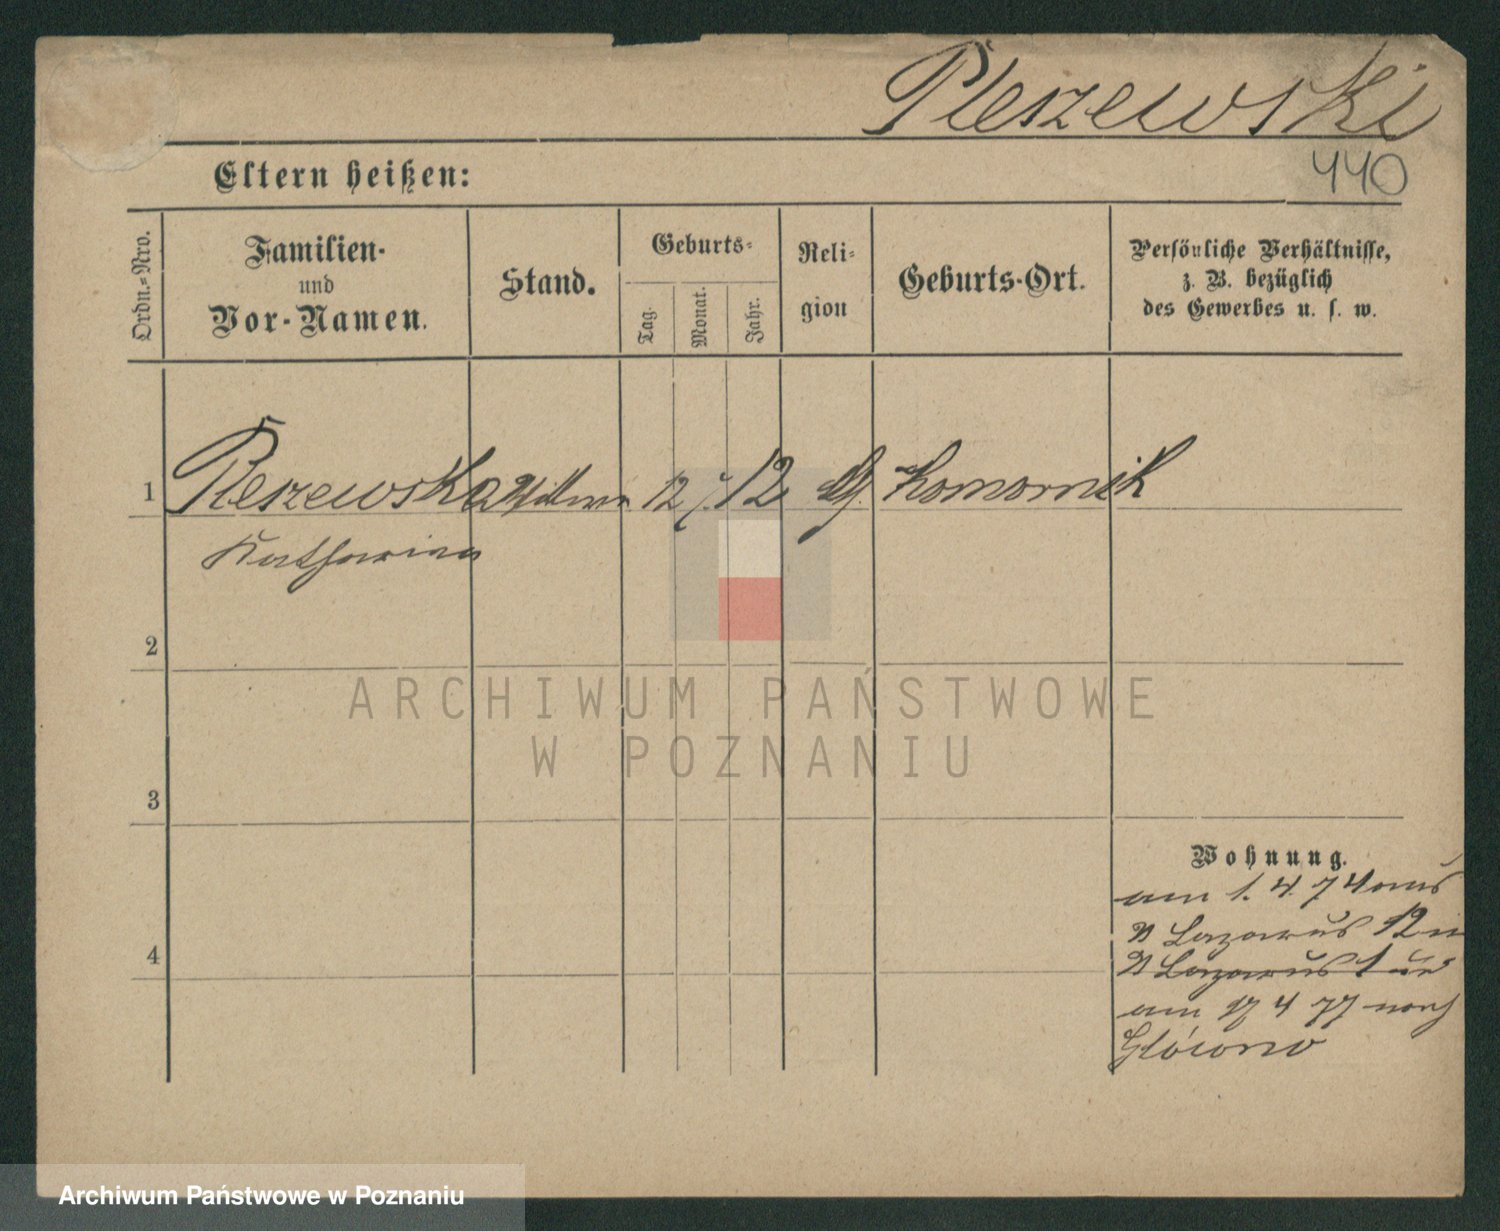 Pleszewski
440
Eltern heißen:
Ordn.-Nro.
Familien- und Vor-Namen.
Stand.
Geburts-
Tag.
Monat.
Jahr.
Religion
Geburts-Ort.
Persönliche Verhältnisse,
z. B. bezüglich
des Gewerbes u. s. w.
1 Pleszewska 12 12 Komornik
Katharina
2
ARCHIWUM PAŃSTWOWE
W POZNANIU
3
Wohnung.
am 1. 4. 74 aus
St Lazarus 12 in
4
St Lazarus 1
am 17 4 77 nach
Główno
Archiwum Państwowe w Poznaniu